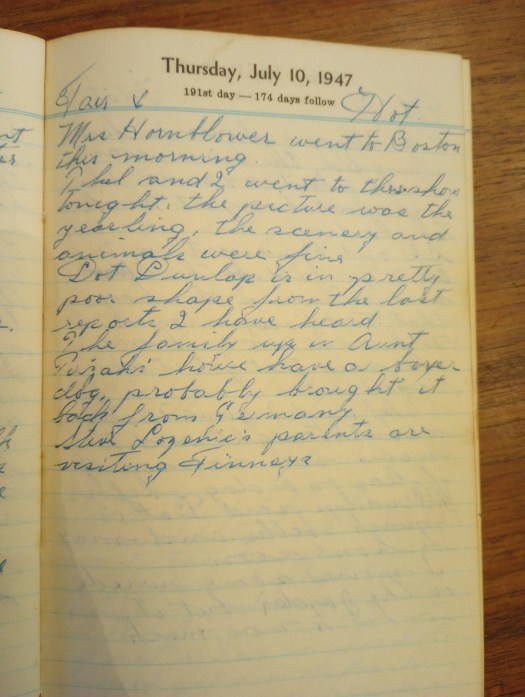 Thursday, July 10, 1947
191st day — 174 days follow
Fair & Hot.
Mrs Hornblower went to Boston
this morning.
Thel and I went to the show
tonight, the picture was the
yearling, the scenery and
animals were fine
Dot Dunlap is in pretty
poor shape from the last
reports I have heard.
The family up in Aunt
house have a boxer
dog, probably brought it
back from Germany.
Steve parents are
visiting Finneys